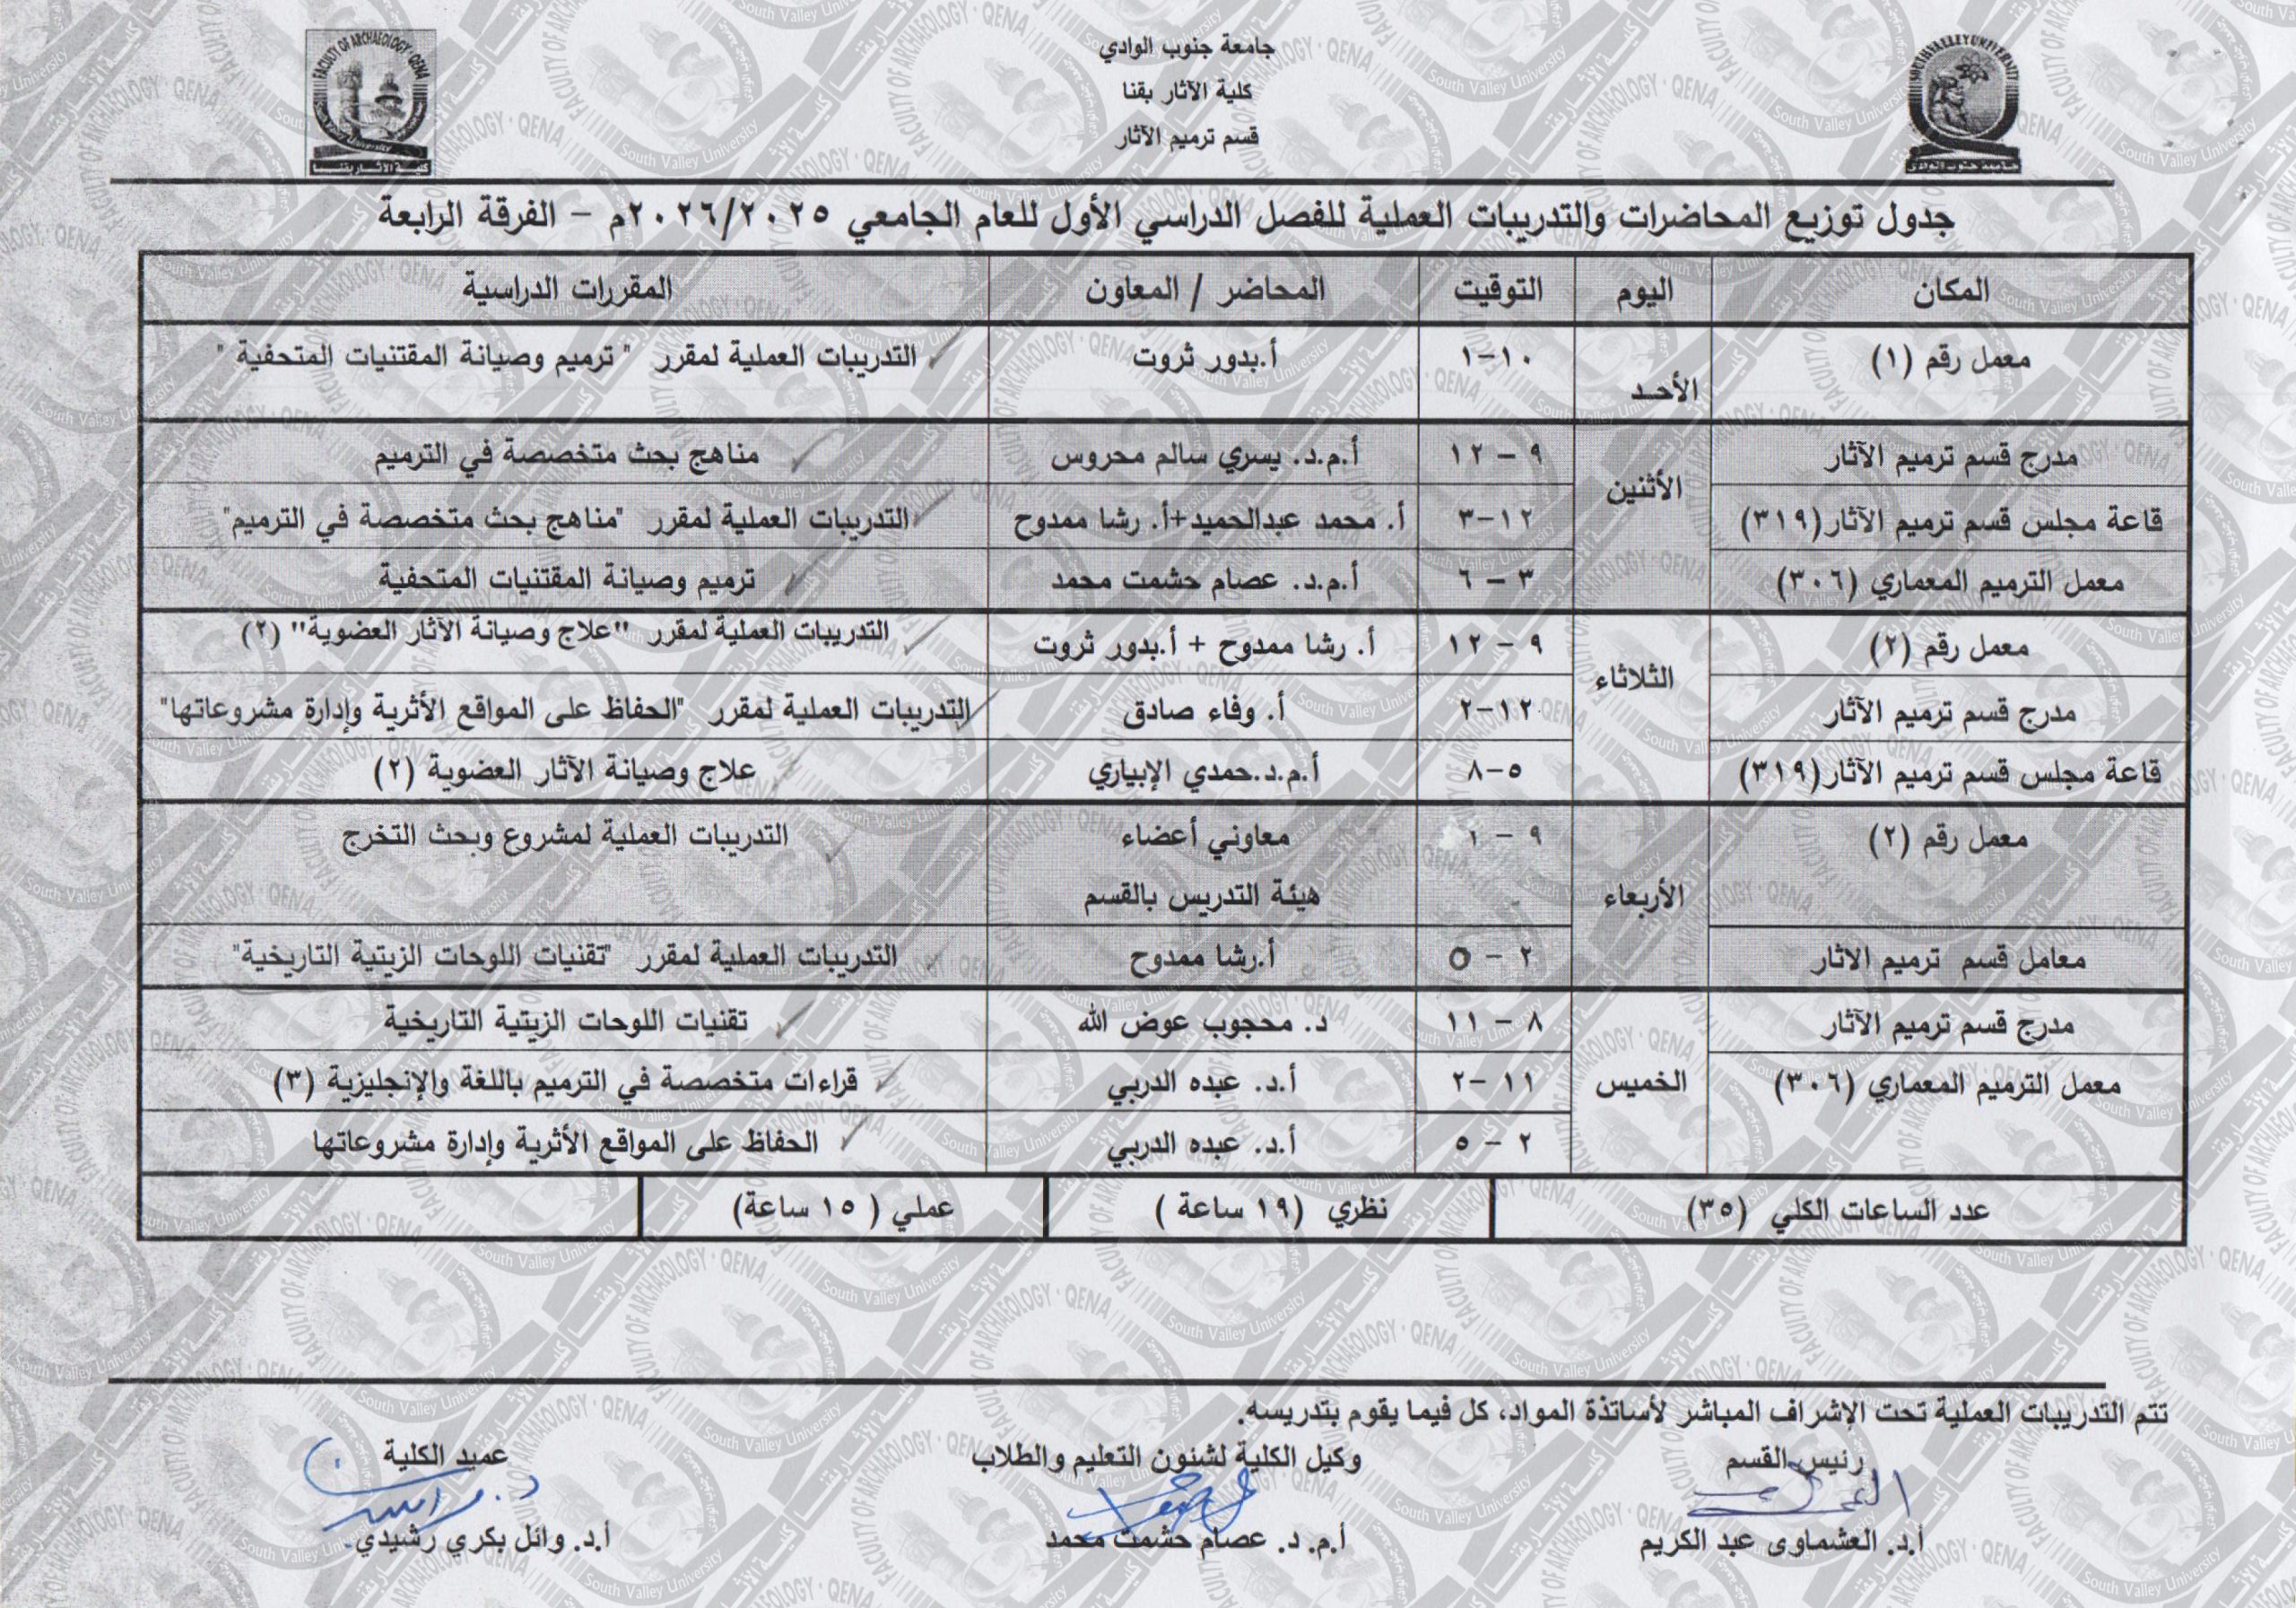 جامعة جنوب الوادي
كلية الآثار بقنا
قسم ترميم الآثار
FACULTY OF ARCHAEOLOGY · QENA
South Valley University
كلية الآثار بقنا
SOUTH VALLEY UNIVERSITY
جامعة جنوب الوادى
جدول توزيع المحاضرات والتدريبات العملية للفصل الدراسي الأول للعام الجامعي ٢٠٢٥/٢٠٢٦م - الفرقة الرابعة
المكان اليوم التوقيت المحاضر / المعاون المقررات الدراسية
معمل رقم (١) الأحد ١٠-١ أ.بدور ثروت التدريبات العملية لمقرر " ترميم وصيانة المقتنيات المتحفية "
مدرج قسم ترميم الآثار الأثنين ٩ - ١٢ أ.م.د. يسري سالم محروس مناهج بحث متخصصة في الترميم
قاعة مجلس قسم ترميم الآثار(٣١٩) ١٢-٣ أ. محمد عبدالحميد+أ. رشا ممدوح التدريبات العملية لمقرر "مناهج بحث متخصصة في الترميم"
معمل الترميم المعماري (٣٠٦) ٣ - ٦ أ.م.د. عصام حشمت محمد ترميم وصيانة المقتنيات المتحفية
معمل رقم (٢) الثلاثاء ٩ - ١٢ أ. رشا ممدوح + أ.بدور ثروت التدريبات العملية لمقرر "علاج وصيانة الآثار العضوية" (٢)
مدرج قسم ترميم الآثار ١٢-٢ أ. وفاء صادق التدريبات العملية لمقرر "الحفاظ على المواقع الأثرية وإدارة مشروعاتها"
قاعة مجلس قسم ترميم الآثار(٣١٩) ٥-٨ أ.م.د.حمدي الإبياري علاج وصيانة الآثار العضوية (٢)
معمل رقم (٢) الأربعاء ٩ - ١ معاوني أعضاء التدريبات العملية لمشروع وبحث التخرج
هيئة التدريس بالقسم
معامل قسم ترميم الاثار ٢ - ٥ أ.رشا ممدوح التدريبات العملية لمقرر "تقنيات اللوحات الزيتية التاريخية"
مدرج قسم ترميم الآثار الخميس ٨ - ١١ د. محجوب عوض الله تقنيات اللوحات الزيتية التاريخية
معمل الترميم المعماري (٣٠٦) ١١ -٢ أ.د. عبده الدربي قراءات متخصصة في الترميم باللغة والإنجليزية (٣)
٢ - ٥ أ.د. عبده الدربي الحفاظ على المواقع الأثرية وإدارة مشروعاتها
عدد الساعات الكلي (٣٥) نظري (١٩ ساعة ) عملي ( ١٥ ساعة)
تتم التدريبات العملية تحت الإشراف المباشر لأساتذة المواد، كل فيما يقوم بتدريسه.
رئيس القسم وكيل الكلية لشئون التعليم والطلاب عميد الكلية
أ.د. العشماوى عبد الكريم أ.م. د. عصام حشمت محمد أ.د. وائل بكري رشيدي